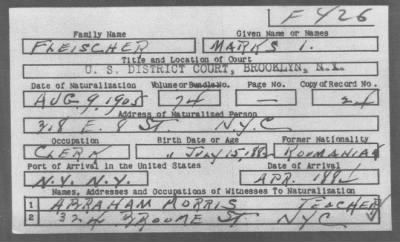 F 426
Family Name Given Name or Names
FLEISCHER MARKS I.
Title and Location of Court
U. S. DISTRICT COURT, BROOKLYN, N.Y.
Date of Naturalization Volume or Bundle No. Page No. Copy of Record No.
AUG. 9. 1905 74 — 24
Address of Naturalized Person
318 E. 8 ST. N.Y.C
Occupation Birth Date or Age Former Nationality
CLERK JULY 15, ROUMANIA
Port of Arrival in the United States Date of Arrival
N.Y. N.Y. APR.
Names, Addresses and Occupations of Witnesses To Naturalization
1 ABRAHAM MORRIS TEACHER
2 324 BROOME ST NYC